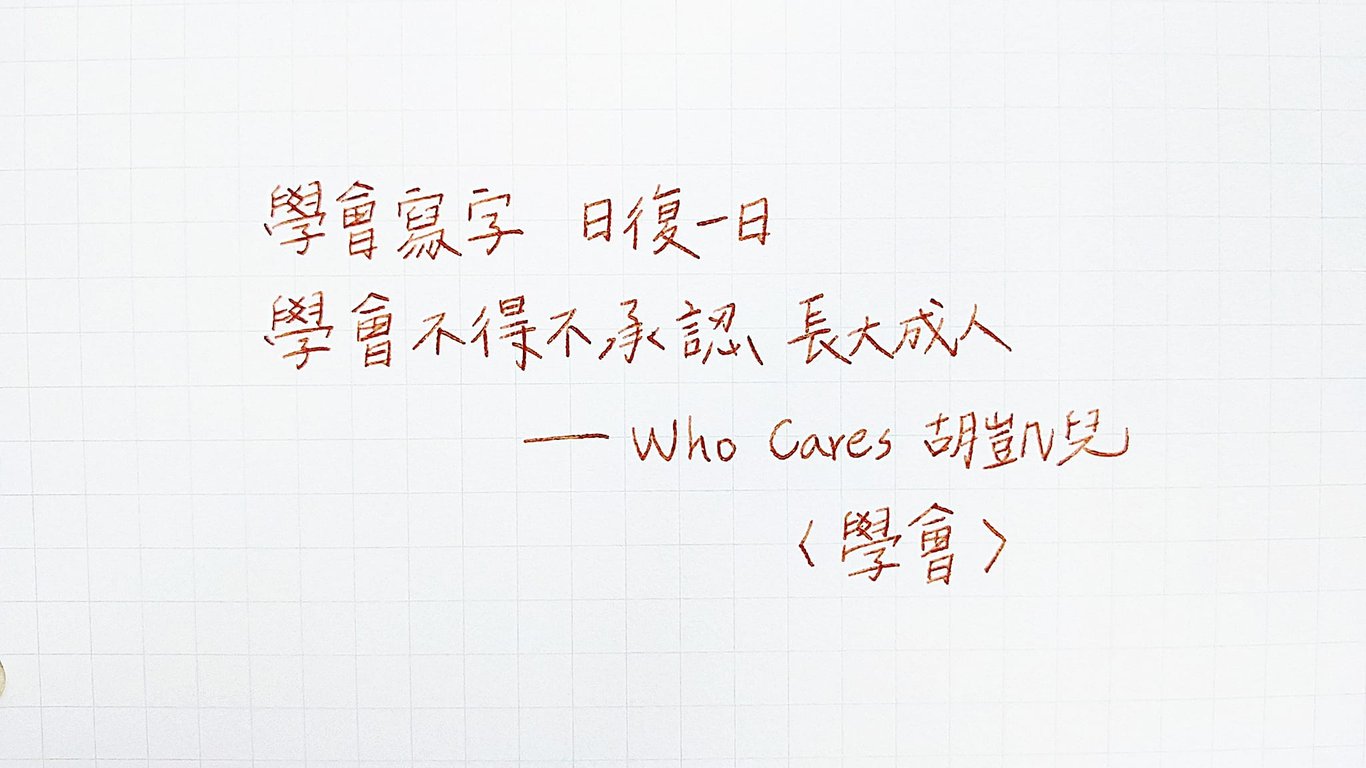 學會寫字 日復一日
學會不得不承認 長大成人
— Who Cares 胡凱兒
〈學會〉